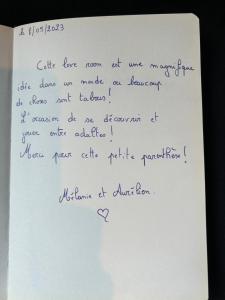 le 1/05/2023
Cette love room est une magnifique
idée dans un monde ou beaucoup
de choses sont tabous !
L'occasion de se découvrir et
jouer entre adultes !
Merci pour cette petite parenthèse !
Mélanie et Aurélien.